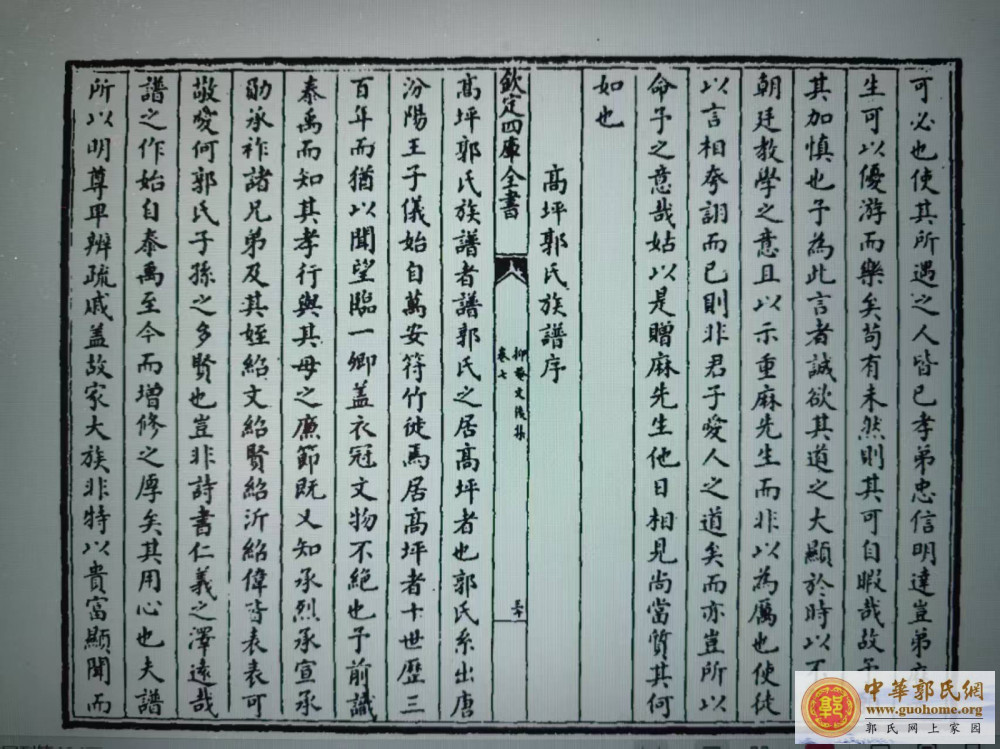 可必也使其所遇之人皆已孝弟忠信明達豈弟
生可以優游而樂矣苟有未然則其可自暇哉故
其加慎也予為此言者誠欲其道之大顯於時以
朝廷教學之意且以示重麻先生而非以為厲也使徒
以言相夸詡而已則非君子愛人之道矣而亦豈所以
命予之意哉姑以是贈麻先生他日相見尚當質其何
如也
高坪郭氏族譜序
欽定四庫全書
抑菴文後集
卷七
高坪郭氏族譜者譜郭氏之居高坪者也郭氏系出唐
汾陽王子儀始自萬安符竹徙焉居高坪者十世歷三
百年而猶以聞望臨一鄉盖衣冠文物不絶也予前識
泰禹而知其孝行與其母之廉節既又知承烈承宣承
勛承祚諸兄弟及其姪紹文紹賢紹沂紹偉皆表表可
敬愛何郭氏子孫之多賢也豈非詩書仁義之澤遠哉
譜之作始自泰禹至今而增修之厚矣其用心也夫譜
所以明尊卑辨疏戚盖故家大族非特以貴富顯聞而
中華郭氏網
www.guohome.org
郭氏网上家园